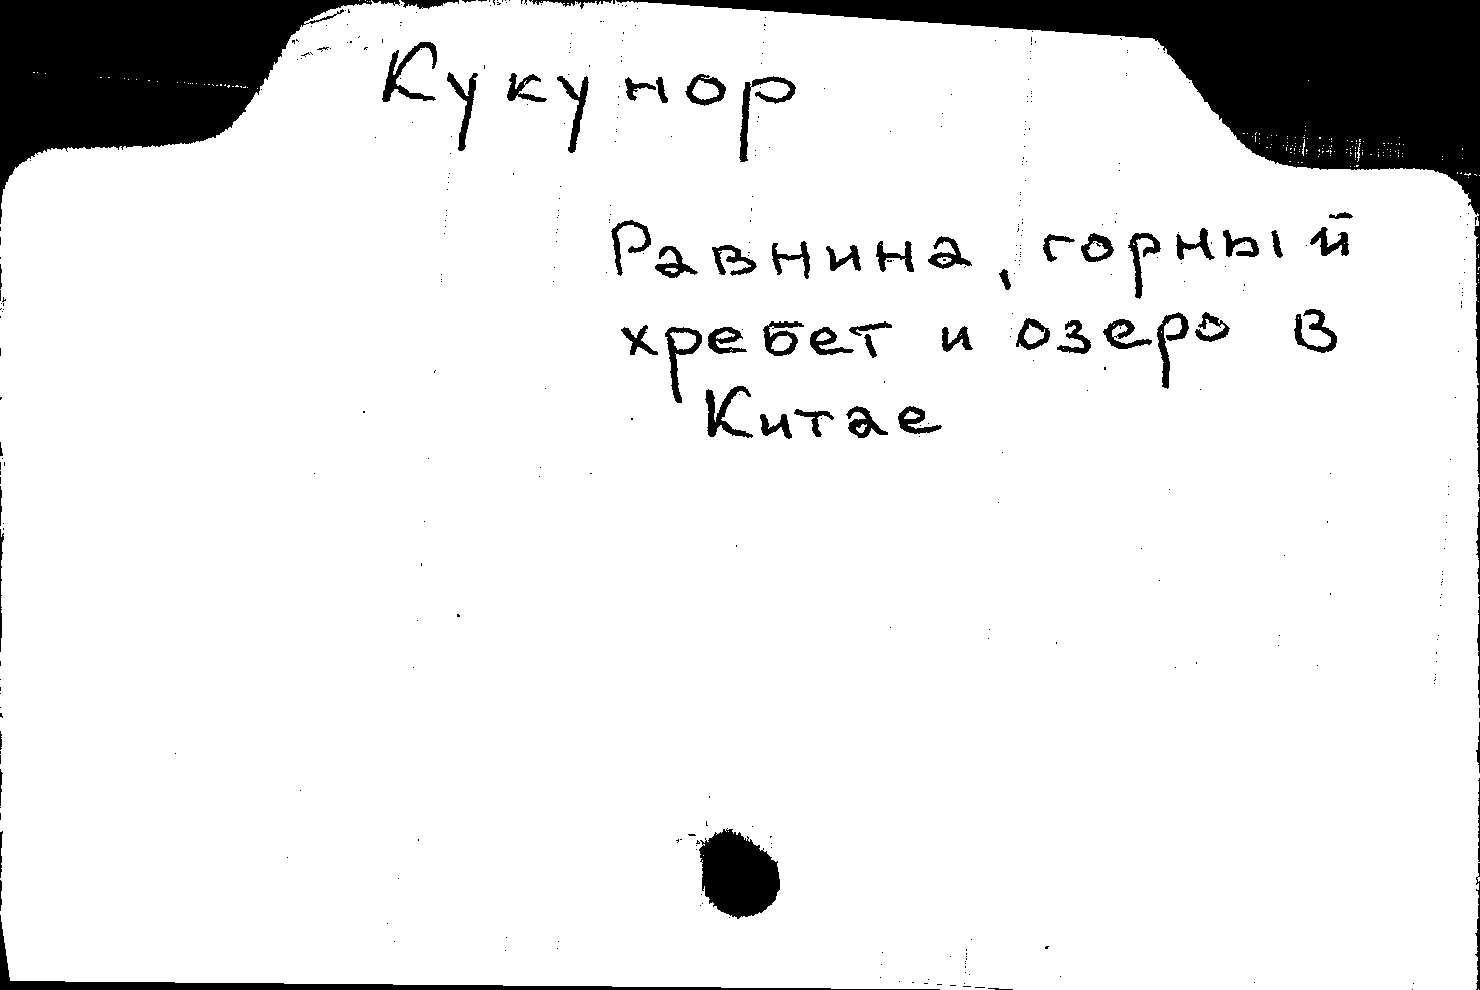 Кукунор
Равнина, горный
хребет и озеро в
Китае